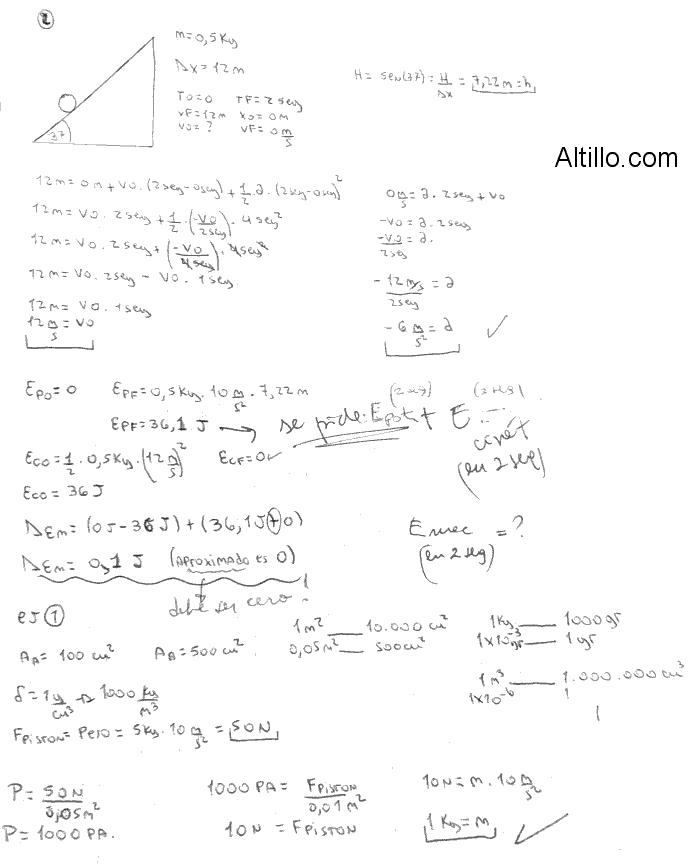 2
m=0,5Kg
Δx=12m
T0=0 TF=2seg
xF=12m x0=0m
v0=? vF=0 m/s
37
H= sen(37)= H/Δx = 7,22m=h
Altillo.com
12m=0m+v0.(2seg-0seg)+1/2.a.(2seg-0seg)²
12m=v0.2seg+1/2.(-v0/2seg).4seg²
12m=v0.2seg+(-v0/4seg).4seg²
12m=v0.2seg-v0.1seg
12m=v0.1seg
12 m/s=v0
0 m/s=a.2seg+v0
-v0=a.2seg
-v0/2seg=a.
-12m/s/2seg=a
-6 m/s²=a
EP0=0 EPF=0,5Kg.10 m/s².7,22m
EPF=36,1 J → se pide: Epot + E cinét
(2seg) (2seg)
(en 2 seg)
EC0=1/2.0,5Kg.(12 m/s)² ECF=0
EC0=36J
ΔEm=(0J-36J)+(36,1J+0)
ΔEm=0,1 J (aproximado es 0)
debe ser cero!
Emec = ?
(en 2 seg)
ej 1
AA=100cm² AB=500cm²
1m² 10.000cm²
0,05m² 500cm²
1Kg 1000gr
1x10⁻³ 1gr
1m³ 1.000.000cm³
1x10⁻⁶ 1
δ=1 g/cm³ → 1000 Kg/m³
FPISTON=Peso=5Kg.10 m/s²=50N
P=50N/0,05m²
P=1000PA.
1000PA=FPISTON/0,01m²
10N=FPISTON
10N=m.10 m/s²
1Kg=m